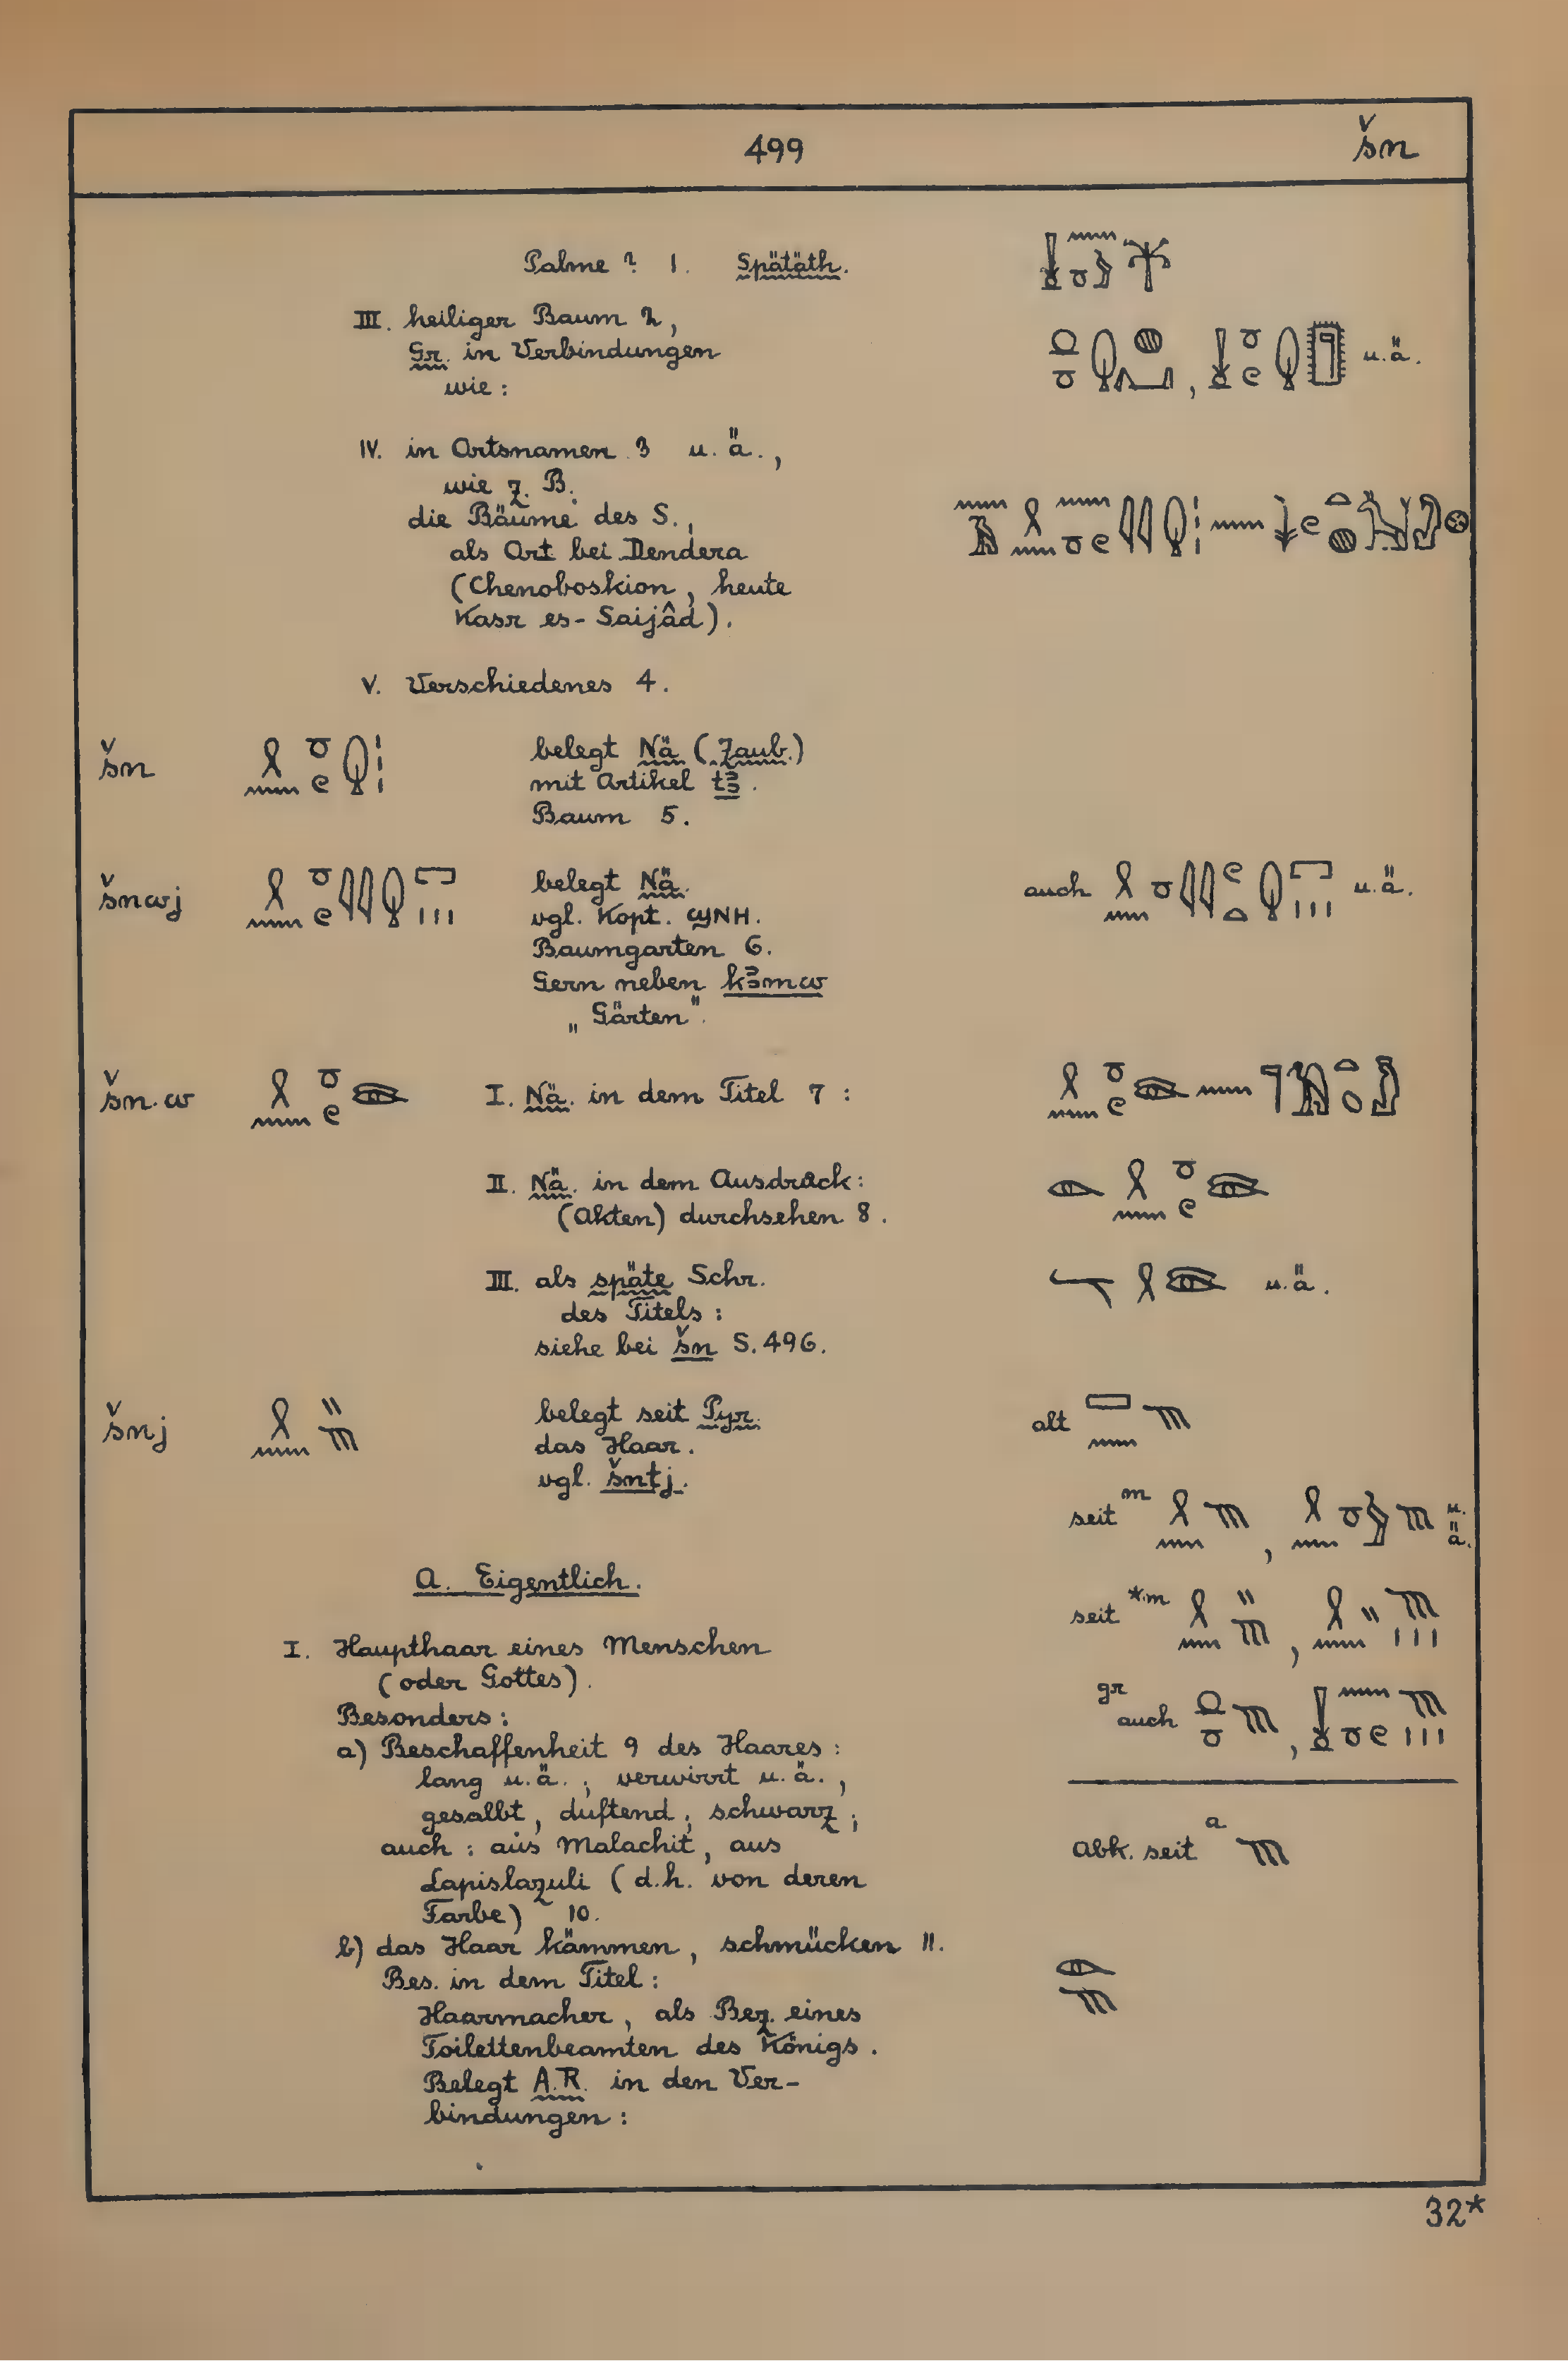 499 šn
Palme ? 1. Spätäth.
III. heiliger Baum 2,
Gr. in Verbindungen
wie : u.ä.
IV. in Ortsnamen 3 u. ä.,
wie z. B.
die Bäume des S.,
als Ort bei Dendera
(Chenoboskion, heute
Kasr es-Saijâd).
V. Verschiedenes 4.
šn belegt Nä (Zaub.)
mit Artikel tꜣ.
Baum 5.
šnwj belegt Nä. auch u.ä.
vgl. Kopt. ϣⲛⲏ.
Baumgarten 6.
Gern neben kꜣmw
„Gärten".
šn.w I. Nä. in dem Titel 7 :
II. Nä. in dem Ausdruck:
(Akten) durchsehen 8.
III. als späte Schr. u.ä.
des Titels :
siehe bei šn S. 496.
šnj belegt seit Pyr. alt
das Haar.
vgl. šntj.
seit m , u. ä.
A. Eigentlich.
seit *m ,
I. Haupthaar eines Menschen
(oder Gottes).
gr auch ,
Besonders :
a) Beschaffenheit 9 des Haares :
lang u.ä. ; verwirrt u.ä.,
gesalbt, duftend ; schwarz ;
auch : aus Malachit, aus
Abk. seit a
Lapislazuli (d.h. von deren
Farbe) 10.
b) das Haar kämmen, schmücken 11.
Bes. in dem Titel :
Haarmacher, als Bez. eines
Toilettenbeamten des Königs.
Belegt A.R. in den Ver-
bindungen :
32*